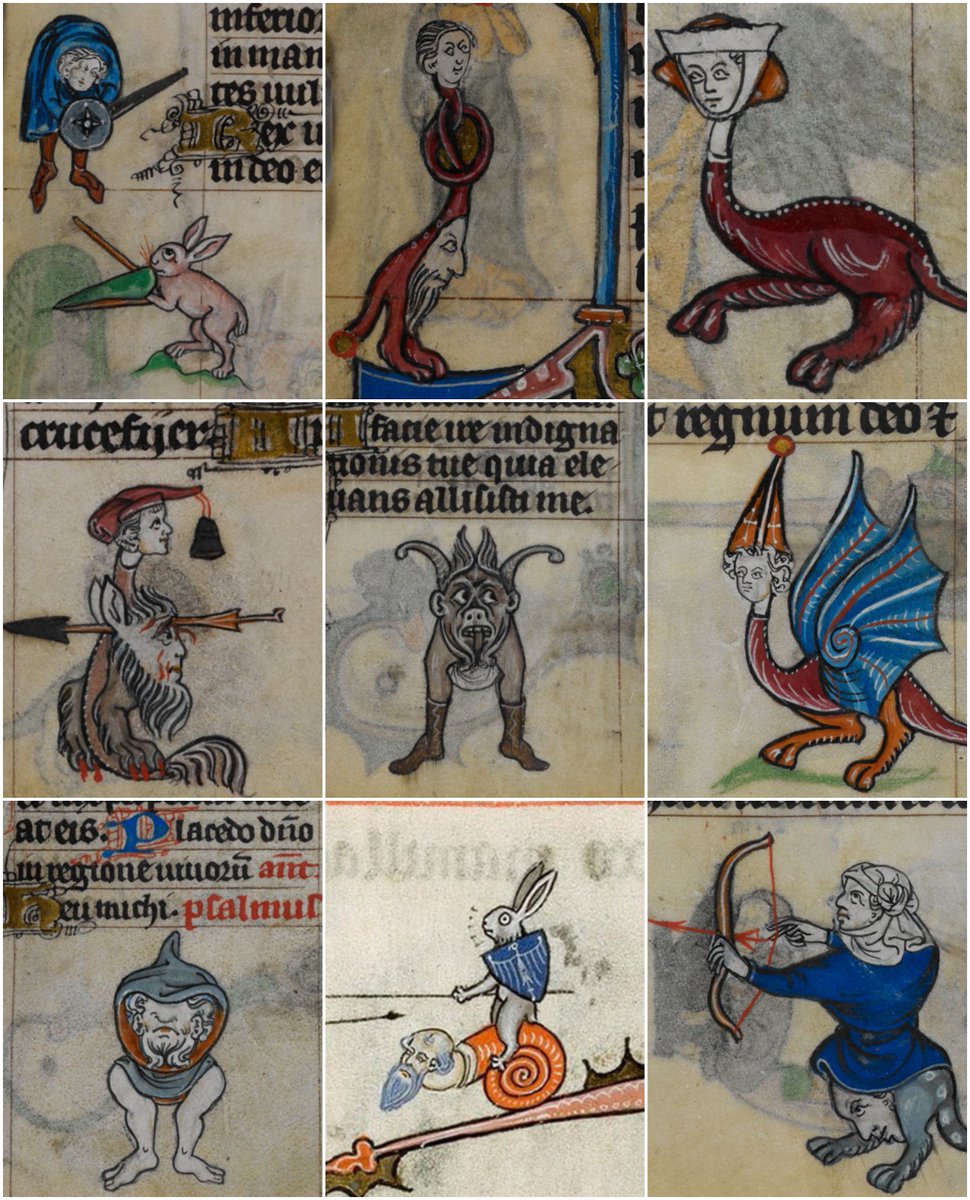 inferior
in man
tes uul
Rex u
in deo e
crucefijer
A facie ire indigna
tionis tue quia ele
uans allisisti me.
t regnum deo
at eis. Placebo dño
in regione uiuorū añt
Heu michi. psalmus